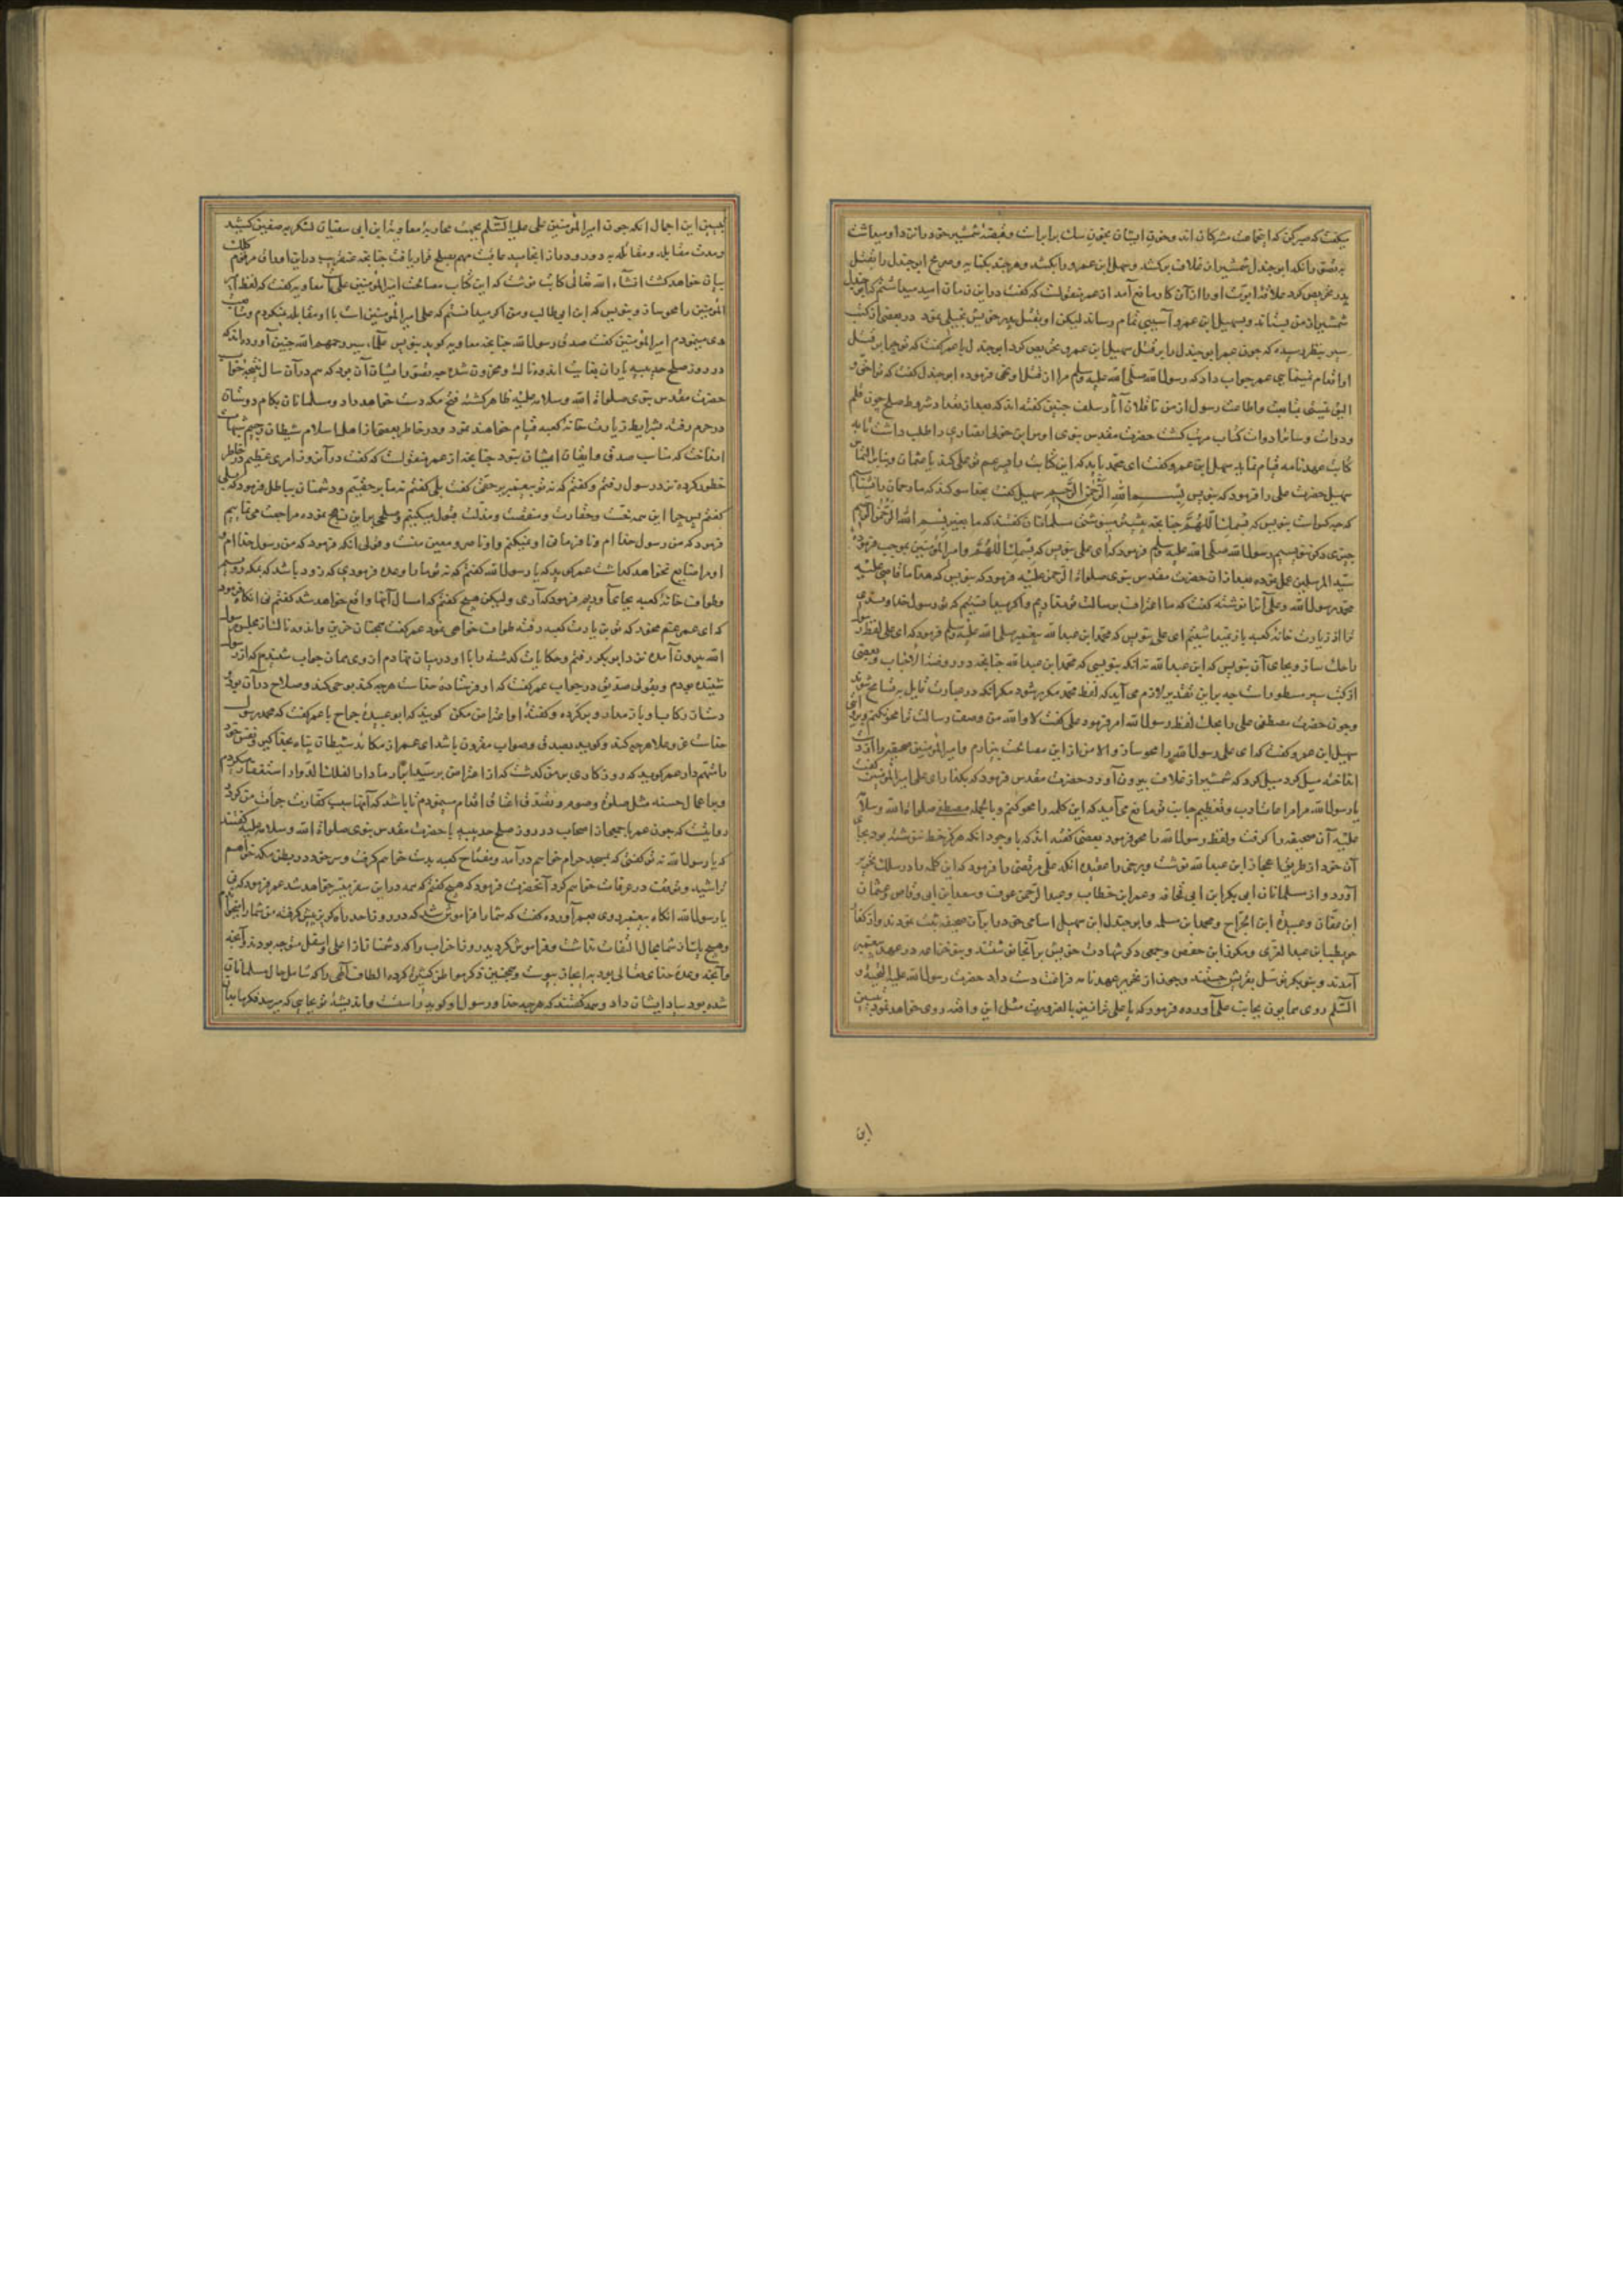 میگفت که صبر کن که این جماعت مشرکان اند و خون ایشان بخون سک برابر است و قبضهٔ شمشیر خود را نزد او میداشت
به تصور آنکه ابو جندل شمشیر از غلاف برکشد و سهیل ابن عمرو را بکشد و هر چند بکنایه و صریح ابو جندل را بقتل
پدر تحریص کرد علاقهٔ ابوت او را از آن کار مانع آمد از عمر منقولست که گفت در این زمان امید میداشتم که ابو جندل
شمشیر از من بستاند و بسهیل ابن عمرو آسیبی تمام رساند لیکن او بقتل پدر خویش بخیلی نمود در بعضی از کتب
سیر بنظر رسیده که چون عمر ابو جندل را بر قتل سهیل ابن عمرو تحریص کرد ابو جندل با عمر گفت که تو چرا بر قتل
او اقدام نمینمایی عمر جواب داد که رسول الله صلی الله علیه وسلم مرا از قتل او نهی فرموده ابو جندل گفت که تو احق و
الیق نیستی بمتابعت و اطاعت رسول از من ناقلان آثار سلف چنین گفته اند که بعد از تعداد شروط صلح چون قلم
و دوات و سایر ادوات کتاب مرتب گشت حضرت مقدس نبوی اوس ابن خولی انصاری را طلب داشت تا به
کتاب عهدنامه قیام نماید سهیل ابن عمرو گفت ای محمد باید که این کتابت را پسر عم تو علی کند یا عثمان و بنابر التماس
سهیل حضرت علی را فرمود که بنویس بسم الله الرحمن الرحیم سهیل گفت بخدا سوگند که ما رحمان را نمیشناسیم
که چه کس است بنویس که بسمک اللهم چنانچه پیش مینوشتی مسلمانان گفتند که ما بغیر بسم الله الرحمن الرحیم
چیزی دیگر ننویسیم رسول الله صلی الله علیه وسلم فرمود که ای علی بنویس که بسمک اللهم و امیر المؤمنین بموجب فرمودهٔ
سید المرسلین عمل نموده بعد از ان حضرت مقدس نبوی صلوات الرحمن علیه فرمود که بنویس که هذا ما قاضی علیه
محمد رسول الله و علی آنرا نوشته گفت که ما اعتراف برسالت تو نداریم و اگر میدانستیم که تو رسول خدا
ترا از زیارت خانهٔ کعبه باز نمیداشتیم ای علی بنویس که محمد ابن عبد الله پیغمبر صلی الله علیه وسلم فرمود که ای علی لفظ رسول
را حک ساز و بجای آن بنویس که ابن عبد الله نه آنکه بنویسی که محمد ابن عبد الله چنانچه در روضة الاحباب و بعضی
از کتب سیر مسطور است چه بر این تقدیر لازم می آید که لفظ محمد مکرر شود مگر آنکه در عبارت قایل به تسامح شوند
و چون حضرت مصطفی علی را بحک لفظ رسول الله امر فرمود علی گفت لا والله من وصف رسالت ترا محو نکنم
سهیل ابن عمرو گفت که ای علی رسول الله را محو ساز و الا من از این مصالحت بیزارم و امیر المؤمنین صحیفه را از دست
انداخته میل کرد که شمشیر از غلاف بیرون آورد حضرت مقدس فرمود که بگذار ای علی امیر المؤمنین گفت
یا رسول الله مرا مراعات ادب و تعظیم جانب تو مانع می آید که این کلمه را محو کنم و بالجمله مصطفی صلوات الله وسلامه
علیه آن صحیفه را گرفت و لفظ رسول الله را محو فرمود بعضی گفته اند که با وجود آنکه هرگز خط ننوشته بود بجای
آن خود از طریق اعجاز ابن عبد الله نوشت و برخی را عقیده آنکه علی مرتضی را فرمود که این کلمه را در سلک تحریر
آورد و از مسلمانان ابی بکر ابن ابی قحافه و عمر ابن خطاب و عبد الرحمن عوف و سعد ابن ابی وقاص و عثمان
ابن عفان و عبیدة ابن الجراح و محمد ابن مسلمه و ابو جندل ابن سهیل اسامی خود را بر آن صحیفه ثبت نمودند و از کفار
حویطب ابن عبد العزی و مکرز ابن حفص و جمعی دیگر شهادت خویش بر آنجا نوشتند و بنو خزاعه در عهد پیغمبر
آمدند و بنو بکر توسل بقریش جستند و چون از تحریر عهدنامه فراغت دست داد حضرت رسول الله علیه التحیة و
السلم روی همایون بجانب علی آورده فرمود که یا علی ترا نیز بالضرورت مثل این واقعه روی خواهد نمود تبیین
این
تبیین این اجمال آنکه چون امیر المؤمنین علی علیه السلم بجهت محاربهٔ معاویة ابن ابی سفیان لشکر به صفین کشید
و مدت مقابله و مقاتله به دور و دراز انجامید عاقبت مهم بصلح قرار یافت چنانچه عنقریب در این اوراق مرقوم کلک
بیان خواهد گشت انشاء الله تعالی کاتب نوشت که این کتاب مصالحت امیر المؤمنین علی معاویه گفت که لفظ امیر
المؤمنین را محو ساز و بنویس که ابن ابی طالب و من اگر میدانستم که علی امیر المؤمنین است با او مقابله نمیکردم و متابعت
وی مینمودم امیر المؤمنین گفت صدق رسول الله چنانچه معاویه گوید بنویس علماء سیر رحمهم الله چنین آورده اند که
در روز صلح حدیبیه یاران بغایت اندوهناک و محزون شدند چه تصور ایشان آن بود که هم در آن سال تعبیر خواب
حضرت مقدس نبوی صلوات الله وسلامه علیه ظاهر گشته فتح مکه دست خواهد داد و مسلمانان بکام دوستان
در حرم رفته بشرایط زیارت خانهٔ کعبه قیام خواهند نمود و در خاطر بعضی از اهل اسلام شیطان رجیم شبهات
انداخت که مناسب صدق و ایقان ایشان نبود چنانچه از عمر منقولست که گفت در آنروز امری عظیم در خاطر
خطور کرده نزد رسول رفتم و گفتم که نه تو پیغمبر بر حقی گفت بلی گفتم نه ما بر حقیم و دشمنان بر باطل فرمود که بلی
گفتم پس چرا این همه خفت و حقارت و منقصت و مذلت قبول میکنیم و صلحی بر این نهج نموده مراجعت می نماییم
فرمود که من رسول خدا ام و نافرمانی او نمیکنم و او ناصر و معین منست و قولی آنکه فرمود که من رسول خدا ام و
او مرا ضایع نخواهد گذاشت عمر گوید که یا رسول الله گفتم که نه تو ما را وعده فرمودی که زود باشد که بمکه رویم
و طواف خانهٔ کعبه بجای آوریم فرمود که آری ولیکن هیچ گفتم که امسال آنها واقع خواهد شد گفتم نی آنگاه فرمود
که ای عمر غم مخور که تو بزیارت کعبه رفته طواف خواهی نمود عمر گفت همچنان حزین و اندوهناک از مجلس رسول
الله بیرون آمده نزد ابو بکر رفتم و حکایات گذشته را با او در میان نهادم از وی همان جواب شنیدم که از رسول
شنیده بودم و بقولی صدیق در جواب عمر گفت که او فرستادهٔ خداست هرچه کند بوحی کند و صلاح در آن بود
دست از رکاب او باز مدار و بر کرده و گفتهٔ او اعتراض مکن گویند که ابو عبیدهٔ جراح با عمر گفت که محمد رسول
خداست عز و علا هرچه کند و گوید بصدق و صواب مقرون باشد ای عمر از مکاید شیطان پناه بخدا گیر و نفس خود
را متهم دار عمر گوید که روزگاری بر من گذشت که از اعتراض بر سید ابرار مادار الفلک الدوار استغفار میکردم
و به اعمال حسنه مثل صلوة و صوم و تصدق اعتاق اقدام مینمودم تا باشد که آنها سبب کفارت جرأت من گردد
روایتست که چون عمر با جمعی از اصحاب در روز صلح حدیبیه با حضرت مقدس نبوی صلوات الله وسلامه علیه گفتند
که یا رسول الله نه تو گفتی که بمسجد حرام خواهم درآمد و مفتاح کعبه بدست خواهم گرفت و سر خود در بطن مکه خواهم
تراشید و وقوف در عرفات خواهم کرد آنحضرت فرمود که هیچ گفتم که همه در این سفر میسر خواهد شد عمر فرمود که نی
یا رسول الله آنگاه پیغمبر روی بعمر آورده گفت که شما را فراموش شد که در روز احد راه گریز پیش گرفته من شما را میخواندم
و هیچ یک از شما بحال التفات نداشت و فراموش کردید روز احزاب را که دشمنان از اعلی و اسفل متوجه بودند و آنچه
و آنچه وعدهٔ خدای تعالی بود به انجاز پیوست و همچنین ذکر مواطن کثیره کرده الطاف الهی را که شامل حال مسلمانان
شده بود بیاد ایشان داد و همه گفتند که هرچه خدا و رسول او گوید راست و اندیشهٔ تو بجایی که میرسد فکر ما بدان